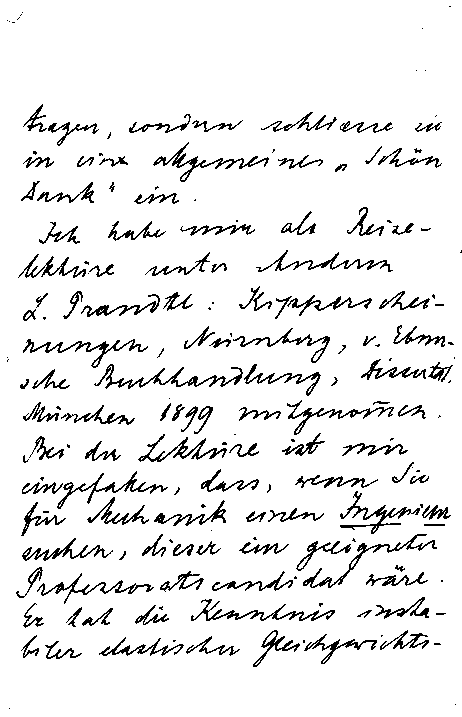 tragen, sondern schliesse sie
in ein allgemeines „Schön
Dank" ein.
Ich habe mir als Reise-
lektüre unter Anderem
L. Prandtl: Kipperschei-
nungen, Nürnberg, v. Ebner-
sche Buchhandlung, Dissertat.
München 1899 mitgenom̄en.
Bei der Lektüre ist mir
eingefallen, dass, wenn Sie
für Mechanik einen Ingenieur
suchen, dieser ein geeigneter
Professoratscandidat wäre.
Er hat die Kenntnis insta-
biler elastischer Gleichgewichts-